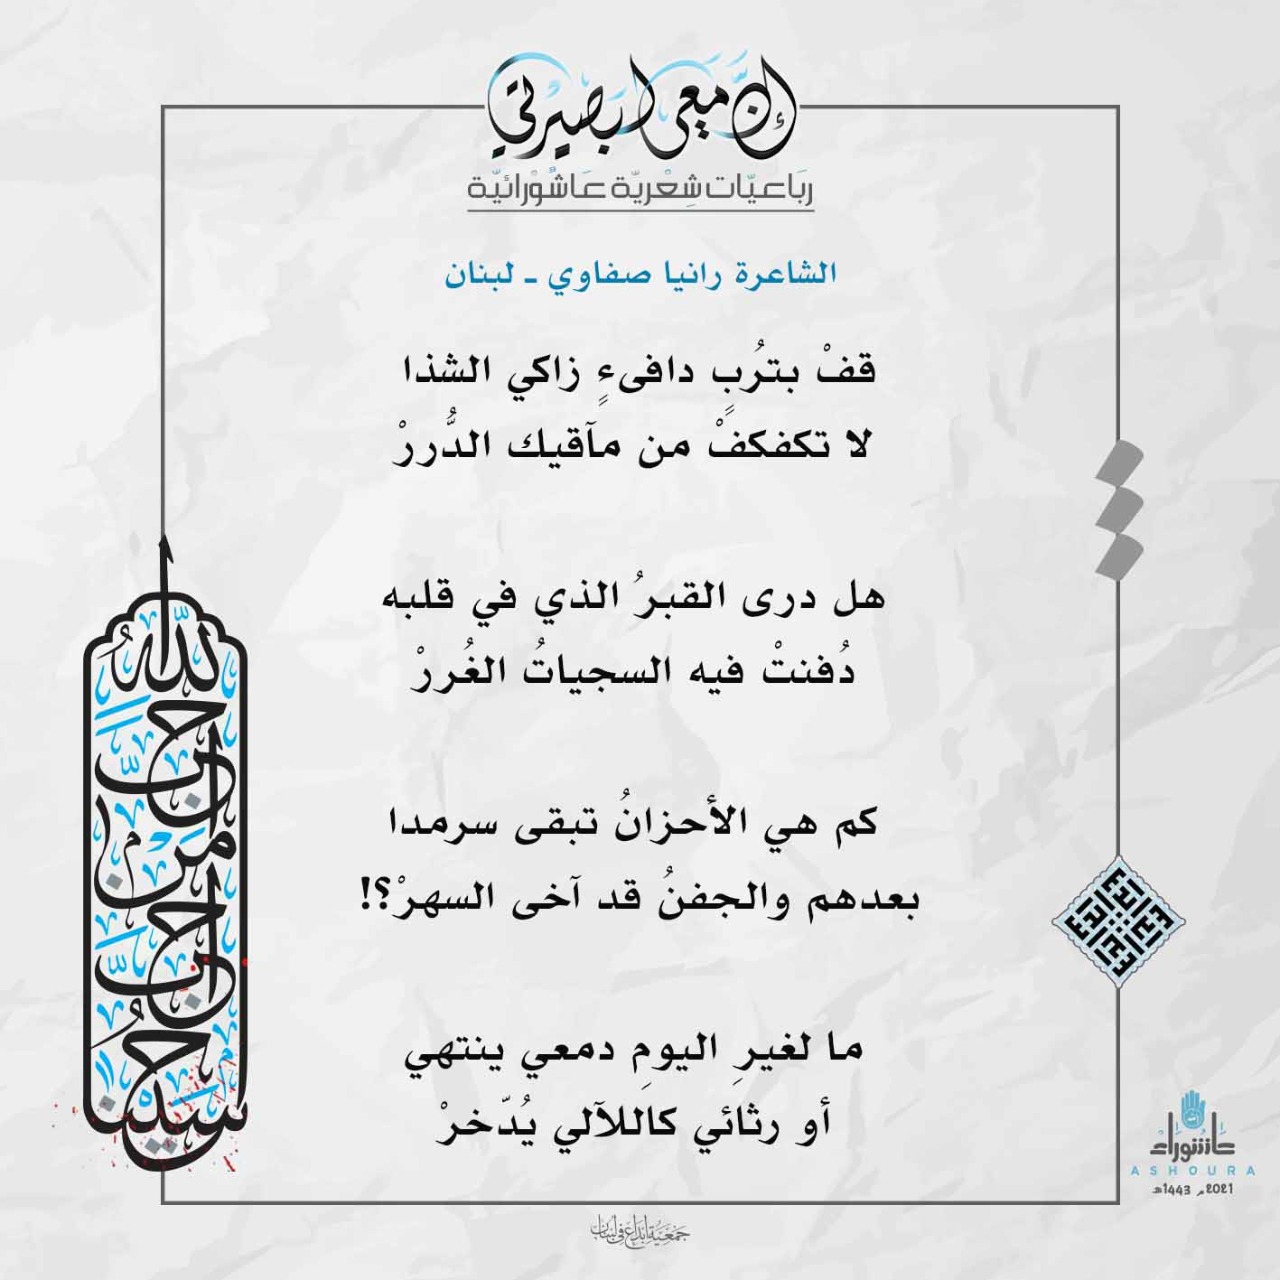 إنّ معي لبصيرتي
رباعيّات شِعْريّة عَاشُوْرائيّة
الشاعرة رانيا صفاوي ـ لبنان
قفْ بتُربٍ دافىءٍ زاكي الشذا
لا تكفكفْ من مآقيك الدُّررْ
هل درى القبرُ الذي في قلبه
دُفنتْ فيه السجياتُ الغُررْ
كم هي الأحزانُ تبقى سرمدا
بعدهم والجفنُ قد آخى السهرْ؟!
ما لغيرِ اليومِ دمعي ينتهي
أو رثائي كاللآلي يُدّخرْ
أحب الله من أحب حسينا
عاشوراء
ASHOURA
2021م 1443هـ
جمعية إبداع في لبنان